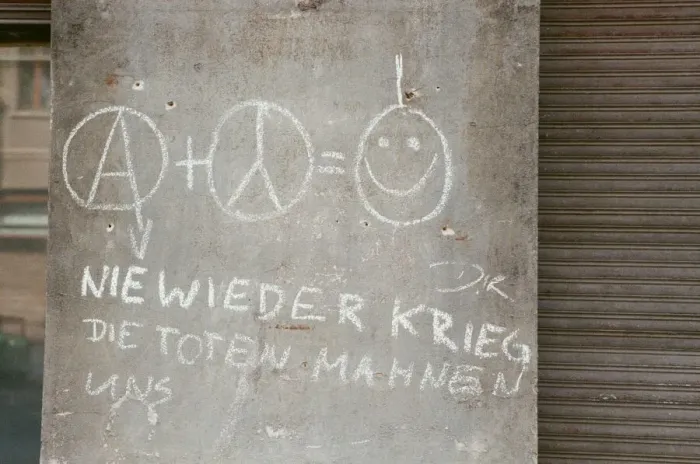 A + =
NIE WIEDER KRIEG
DIE TOTEN MAHNEN
UNS